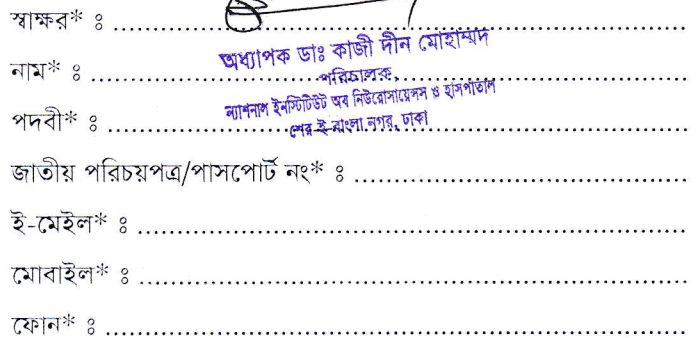 স্বাক্ষর* ঃ
অধ্যাপক ডাঃ কাজী দীন মোহাম্মদ
নাম* ঃ
পরিচালক,
ন্যাশনাল ইনস্টিটিউট অব নিউরোসায়েন্সেস ও হাসপাতাল
পদবী* ঃ
শের-ই-বাংলা নগর, ঢাকা
জাতীয় পরিচয়পত্র/পাসপোর্ট নং* ঃ
ই-মেইল* ঃ
মোবাইল* ঃ
ফোন* ঃ